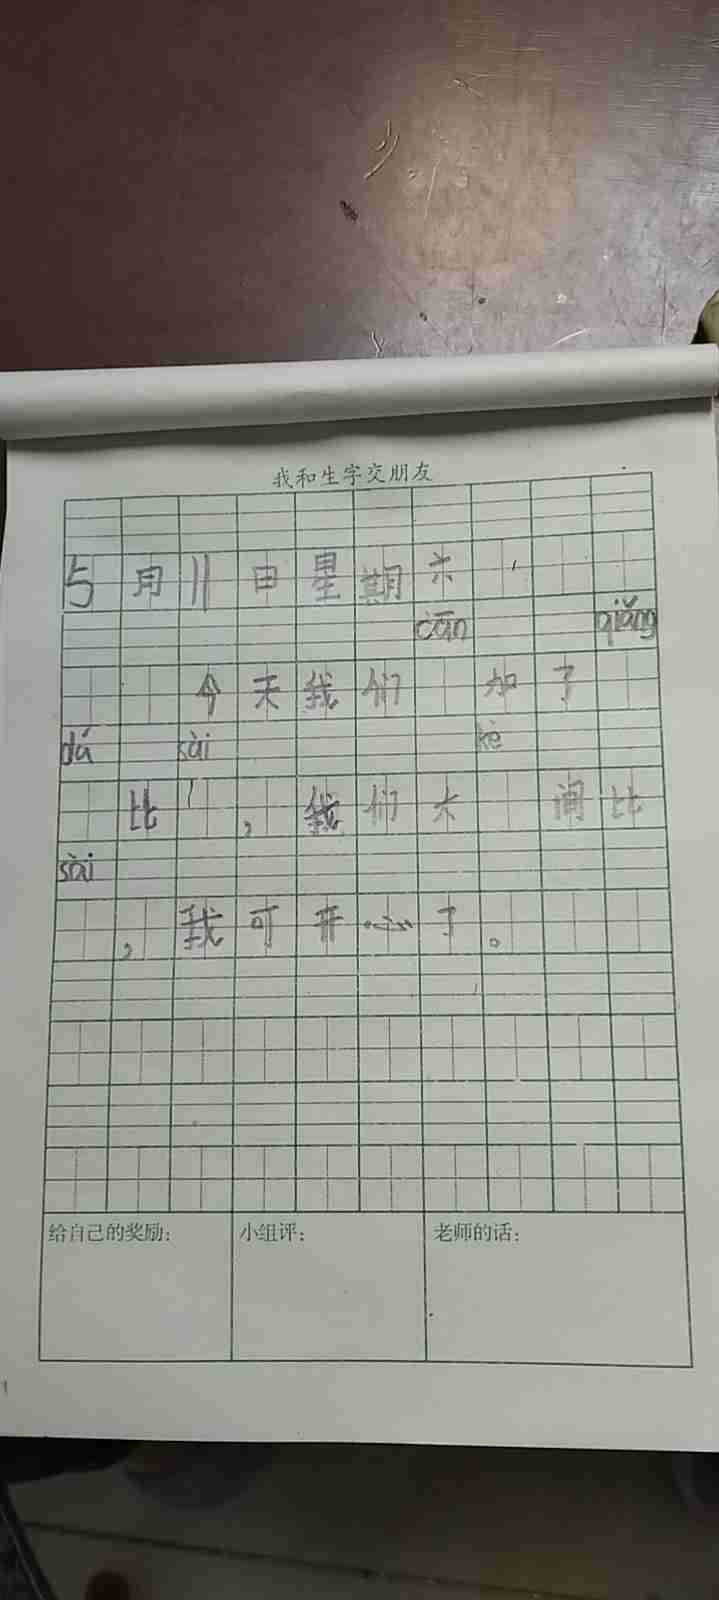 我和生字交朋友
5月11日星期六
cān qiǎng
今天我们 加了
dá sài kè
比 ,我们大 闹比
sài
,我可开心了。
给自己的奖励: 小组评: 老师的话: